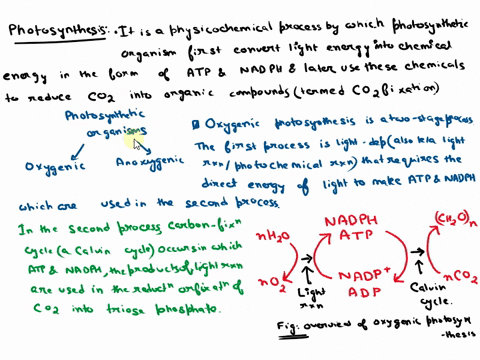 Photosynthesis:- It is a physicochemical process by which photosynthetic
organism first convert light energy into chemical
energy in the form of ATP & NADPH & later use these chemicals
to reduce CO2 into organic compounds (termed CO2 fixation)
Photosynthetic
organisms
Oxygenic
Anoxygenic
Oxygenic photosynthesis is a two-stage process
The first process is light-dep (also k/a light
rxn/photochemical rxn) that requires the
direct energy of light to make ATP & NADPH
which are used in the second process.
In the second process Carbon-fixn
cycle (a Calvin cycle) occurs in which
ATP & NADPH, the products of light rxn
are used in the reductn or fixatn of
CO2 into triose phosphate.
nH2O
nO2
Light
rxn
NADPH
ATP
NADP+
ADP
(CH2O)n
nCO2
Calvin
cycle.
Fig: overview of oxygenic photosyn
-thesis